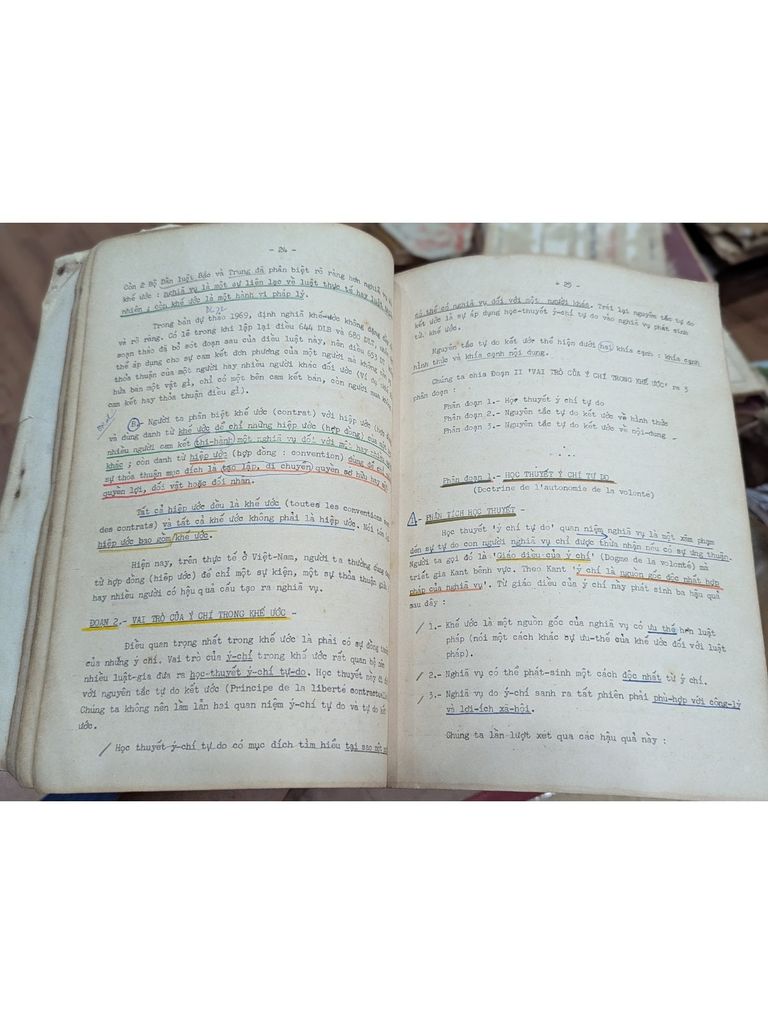 - 24 -
Còn 2 Bộ Dân luật Bắc và Trung đã phân biệt rõ ràng hơn nghĩa
khế ước : nghĩa vụ là một sự liên lạc về luật thực tế hay luật
nhiên ; còn khế ước là một hành vi pháp lý.
Trong bản dự thảo 1969, định nghĩa khế-ước không
và rõ ràng. Có lẽ trong khi lập lại điều 644 DLB và 680 DLT,
soạn thảo đã bỏ sót đoạn sau của điều luật này, nên điều 653
thể áp dụng cho sự cam kết đơn phương của một người mà không
thỏa thuận của một người hay nhiều người khác đối ước (Ví dụ
hứa bán một vật gì, chỉ có một bên cam kết bán, còn người mua không
cam kết hay thỏa thuận điều gì).
B- Người ta phân biệt khế ước (contrat) với hiệp ước (hợp
và dùng danh từ khế ước để chỉ những hiệp ước (hợp đồng) của
nhiều người cam kết thi-hành một nghĩa vụ đối với một hay nhiều
khác ; còn danh từ hiệp ước (hợp đồng : convention) dùng để chỉ
sự thỏa thuận mục đích là tạo lập, di chuyển quyền sở hữu hay
quyền lợi, đối vật hoặc đối nhân.
Tất cả hiệp ước đều là khế ước (toutes les conventions
des contrats) và tất cả khế ước không phải là hiệp ước. Nói
hiệp ước bao gồm/khế ước.
Hiện nay, trên thực tế ở Việt-Nam, người ta thường dùng
từ hợp đồng (hiệp ước) để chỉ một sự kiện, một sự thỏa thuận giữa
hay nhiều người có hậu quả cấu tạo ra nghĩa vụ.
ĐOẠN 2.- VAI TRÒ CỦA Ý CHÍ TRONG KHẾ ƯỚC -
Điều quan trọng nhất trong khế ước là phải có sự đồng
của những ý chí. Vai trò của ý-chí trong khế ước rất quan
nhiều luật-gia đưa ra học-thuyết ý-chí tự-do. Học thuyết này đi
với nguyên tắc tự do kết ước (Principe de la liberté contractuelle
Chúng ta không nên lầm lẫn hai quan niệm ý-chí tự do và tự do kết
ước.
Học thuyết ý-chí tự do có mục đích tìm hiểu tại sao một
- 25 -
có thể có nghĩa vụ đối với một người khác. Trái lại nguyên tắc tự do
kết ước là sự áp dụng học-thuyết ý-chí tự do vào nghĩa vụ phát sinh
từ khế ước.
Nguyên tắc tự do kết ước thể hiện dưới hai khía cạnh : khía cạnh
hình thức và khía cạnh nội dung.
Chúng ta chia Đoạn II 'VAI TRÒ CỦA Ý CHÍ TRONG KHẾ ƯỚC' ra 3
phân đoạn :
Phân đoạn 1.- Học thuyết ý chí tự do
Phân đoạn 2.- Nguyên tắc tự do kết ước về hình thức
Phân đoạn 3.- Nguyên tắc tự do kết ước về nội-dung -
Phân đoạn 1.- HỌC THUYẾT Ý CHÍ TỰ DO
(Doctrine de l'autonomie de la volonté)
A.- PHÂN TÍCH HỌC THUYẾT -
Học thuyết 'ý chí tự do' quan niệm nghĩa vụ là một xâm phạm
đến sự tự do con người nghĩa vụ chỉ được thừa nhận nếu có sự ưng thuận.
Người ta gọi đó là 'Giáo điều của ý chí' (Dogme de la volonté) mà
triết gia Kant bênh vực. Theo Kant 'ý chí là nguồn gốc độc nhất hợp
pháp của nghĩa vụ'. Từ giáo điều của ý chí này phát sinh ba hậu quả
sau đây :
1.- Khế ước là một nguồn gốc của nghĩa vụ có ưu thế hơn luật
pháp (nói một cách khác sự ưu-thế của khế ước đối với luật
pháp).
2.- Nghĩa vụ có thể phát-sinh một cách độc nhất từ ý chí.
3.- Nghĩa vụ do ý-chí sanh ra tất phiên phải phù-hợp với công-lý
và lợi-ích xã-hội.
Chúng ta lần lượt xét qua các hậu quả này :